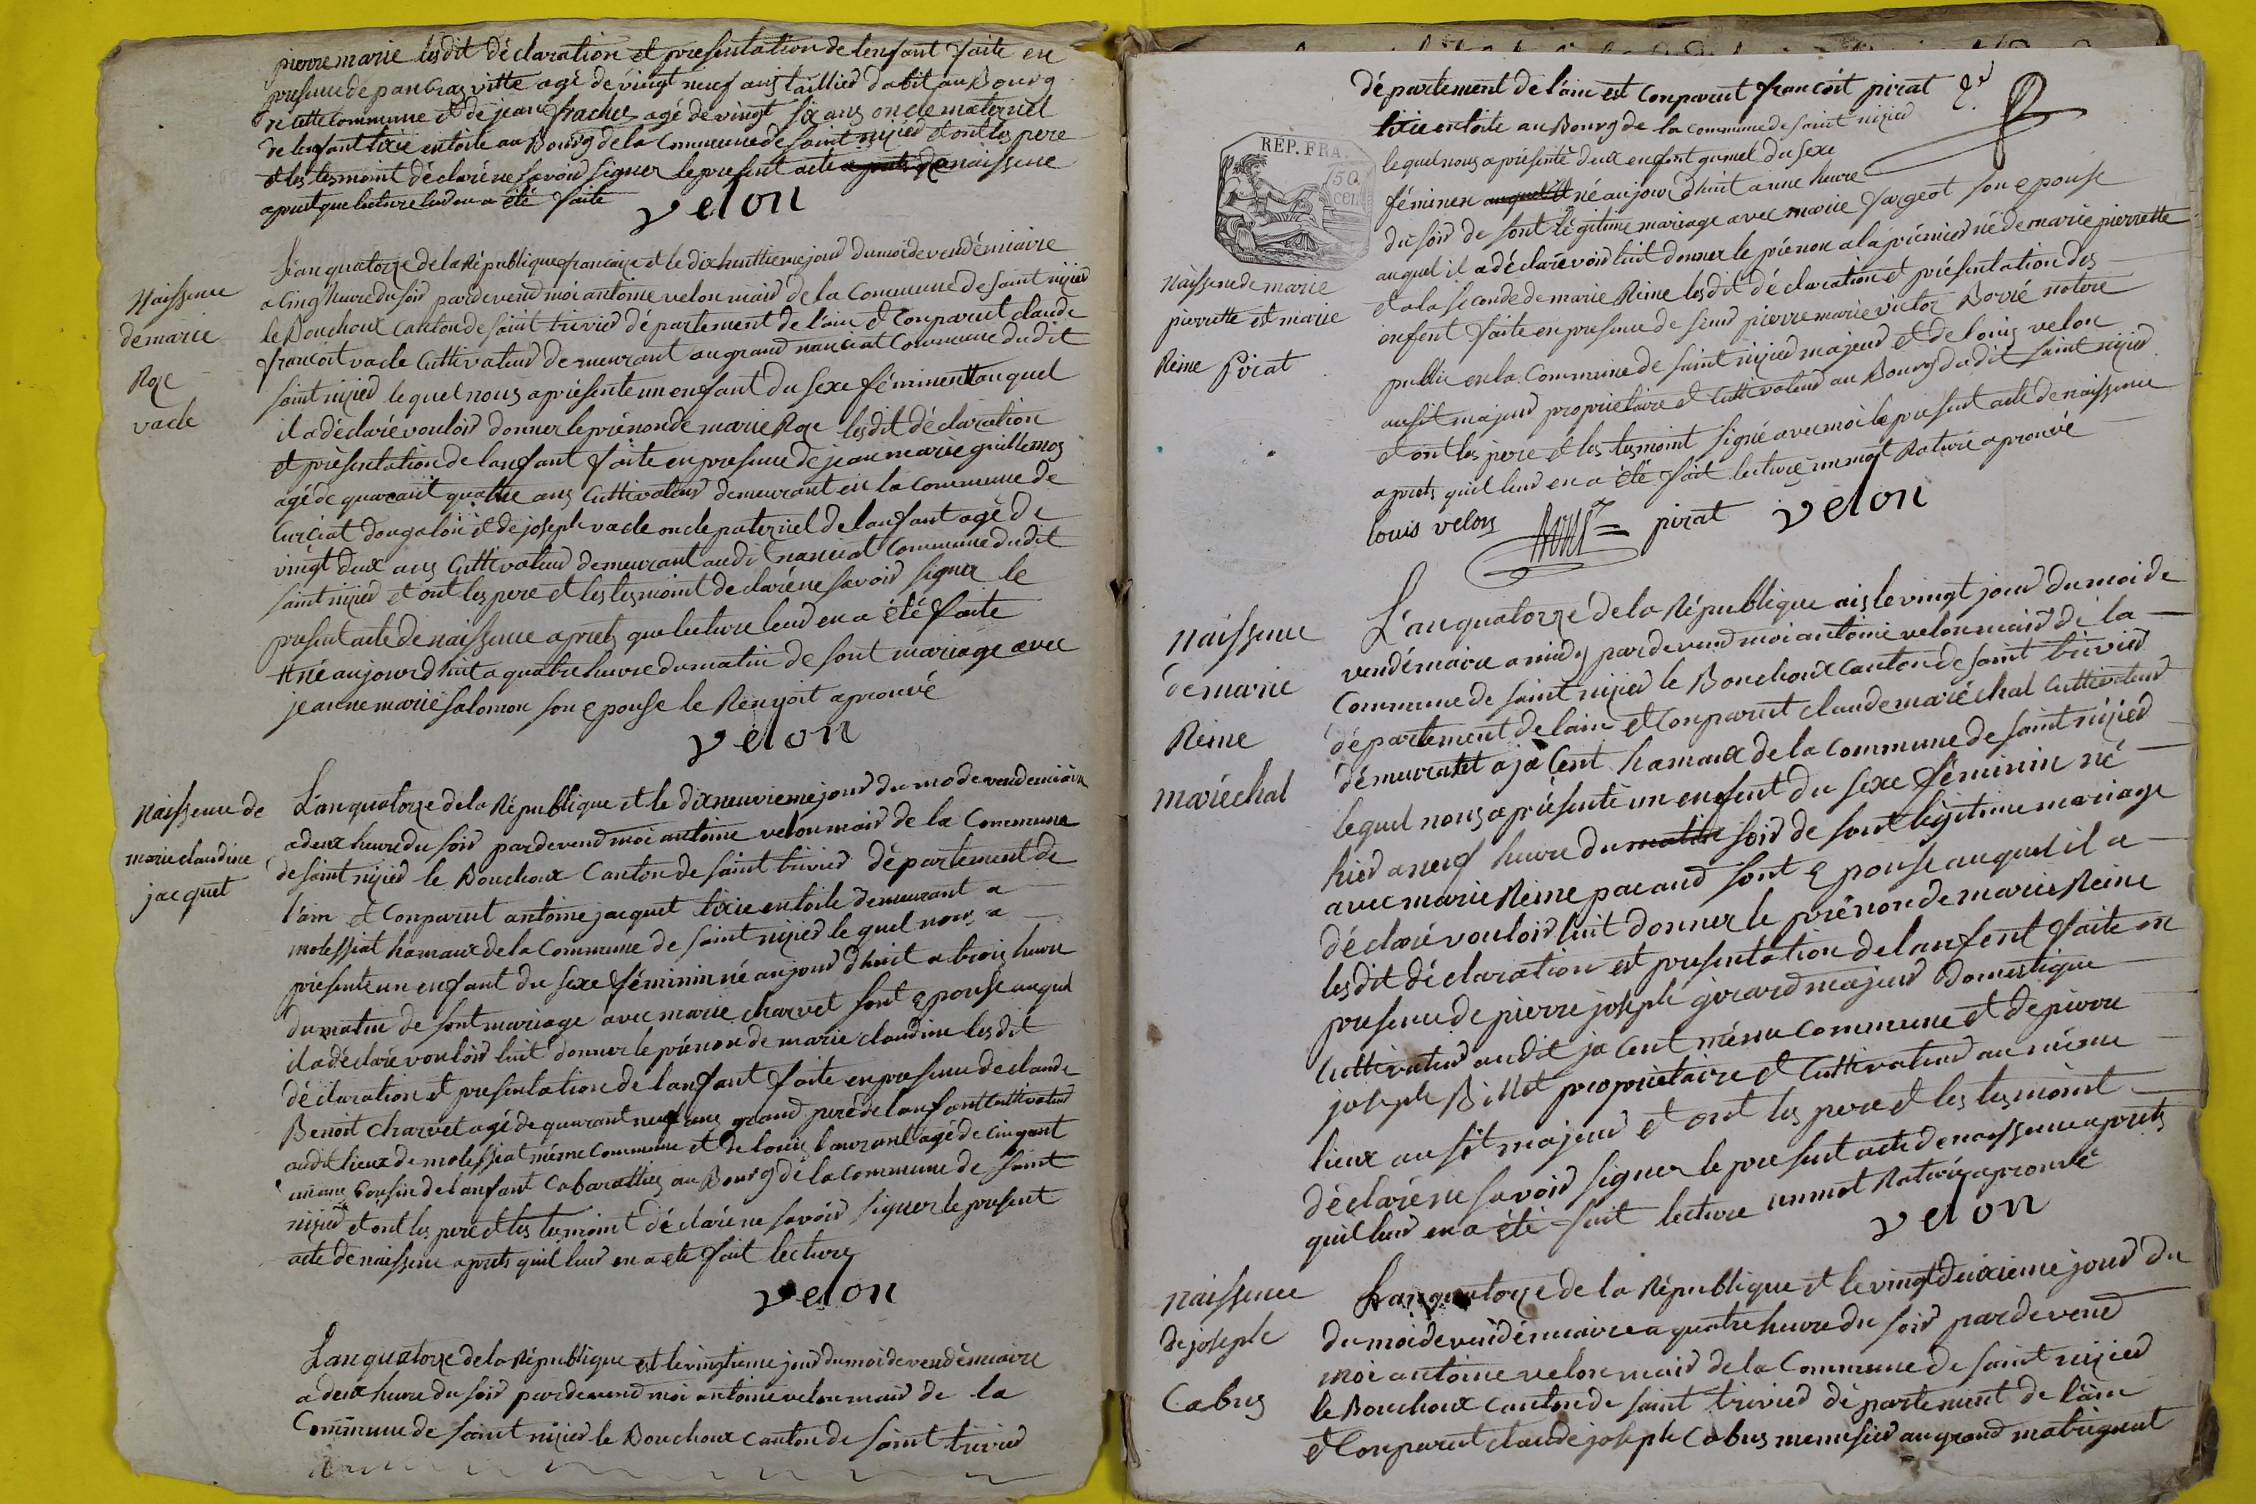 pierre marie lesdit déclaration et presentation de lenfant faite en
presence de pancras vitte agé de vingt neuf ans taillier dabit au Bourg
de cette commune et de jean frachet agé de vingt six ans oncle maternel
de lenfant tixie en toile au Bourg de la Commune de saint nizied et ont les pere
et les tesmoint déclaré ne savoid signer le present acte de naissence
apret que lecture leud en a été faite
velon
Naissence
de marie
Roze
vacle
L'an quatorze de la République francaize et le dix huittieme jour du moi de vendémiaire
a cinq heure du soid pardevend moi antoine velon maid de la Commune de saint nizied
le Bouchoux canton de saint trivied département de l'ain et Conparut claude
francoit vacle Cuttivateud demeurant au grand nanciat Commune dudit
saint nizied lequel nous a présente un enfant du sexe féminen # auquel
il a déclaré vouloid donner le prénon de marie Roze lesdit déclaration
et présentation de lanfant faite en presence de jean marie guillemos
agé de quarant quatre ans Cuttivateud demeurant en la Commune de
Curciat dongalon et de joseph vacle oncle paternel de lanfant agé de
vingt deux ans Cuttivateud demeurant audit nanciat Commune dudit
saint nizied et ont les pere et les tesmoint declaré ne savoid signer le
present acte de naissence aprets que lecture leud en a été faite
# né aujourdhuit a quatre heure du matin de sont mariage avec
jeanne marie salomon son epouse le Renvoit aprouvé
velon
Naissence de
marie claudine
jacquet
L'an quatorze de la République et le dixneuvieme jour du mo de vendemiaire
a deux heure du soid pardevend moi antoine velon maid de la Commune
de saint nizied le Bouchoux Canton de saint trivied département de
l'ain et Conparut antoine jacquet tixie en toile demeurant a
molissiat hamaux de la Commune de saint nizied le quel nous a
présente un enfant du sexe féminin né aujourdhuit a trois heure
du matin de sont mariage avec marie charvet sont epouse auquel
il a déclaré vouloid luit donner le prénon de marie claudine lesdit
déclaration et presentation de lanfant faite en presence de claude
Benoit charvet agé de quarant neuf ans grand pere de lanfant cuttivateud
audit lieux de molissiat méme Commune et de louis laurant agé de cinqant
un ans Cousin de lanfant Cabarattier au Bourg de la Commune de saint
nizied et ont les pere et les tesmoint déclaré ne savoid signer le present
acte de naissence aprets quil leud en a ete fait lecture
velon
L'an quatorze de la République est le vingtieme jour du moi de vendémiaire
a deux heure du soid pardevend moi antoine velon maid de la
Commune de saint nizied le Bouchoux canton de saint trivied
département de l'ain est Conparut francoit pirat
tixie en toile au Bourg de la commune de saint nizied
lequel nous a présenté deux enfent gumel du sexe
REP. FRA.
50
cent
féminen né aujourdhuit a une heure
du soid de sont légitime mariage avec marie fargeot son epouse
auquel il a déclaré vouloid luit donner le prénon a la prémied né de marie pierrette
et a la seconde de marie Reine lesdit déclaration et présentation des
enfent faite en presence de sieud pierre marie victor Borré notere
public en la Commune de saint nizied majeud et de louis velon
ausit majeud proprietaire et Cuttivateud au Bourg dudit saint nizied
et ont les pere et les tesmoint signé avec moi le present acte de naissence
aprets quil leud en a été fait lecture un mot Raturé aprouvé
Naissence de marie
pierrette et marie
Reine Pirat
louis velon pirat velon
Naissence
de marie
Reine
maréchal
L'an quatorze de la République ais le vingt jour du moi de
vendémaire a midy pardevend moi antoine velon maid de la
Commune de saint nizied le Bouchoux canton de saint trivied
département de lain et Conparut claude maréchal Cuttivateud
démeurant a ja Cent hamaux de la Commune de saint nizied
lequel nous a présenté un enfent du sexe féminin né
hied a neuf heure du matin soid de sont légitime mariage
avec marie Reine pacaud sont epouse auquel il a
déclaré vouloid luit donner le prénon de marie Reine
lesdit déclaration est presentation de lanfent faite en
presence de pierre joseph girard majeud Domestique
Cuttivateud audit ja Cent méme Commune et de pierre
joseph Billet proprietaire et Cuttivateud au méme
lieux ausit majeud et ont les pere et les tesmoint
déclaré ne savoid signer le present acte de naissence aprets
quil leud en a été fait lecture un mot Raturé aprouvé
velon
Naissence
de joseph
Cabus
L'an quatorze de la République et le vingt deuxieme jour du
du moi de vendémiaire a quatre heure du soid pardevend
moi antoine velon maid de la Commune de saint nizied
le Bouchoux canton de saint trivied département de l'ain
et Conparut claude joseph Cabus menusied au grand matrignat